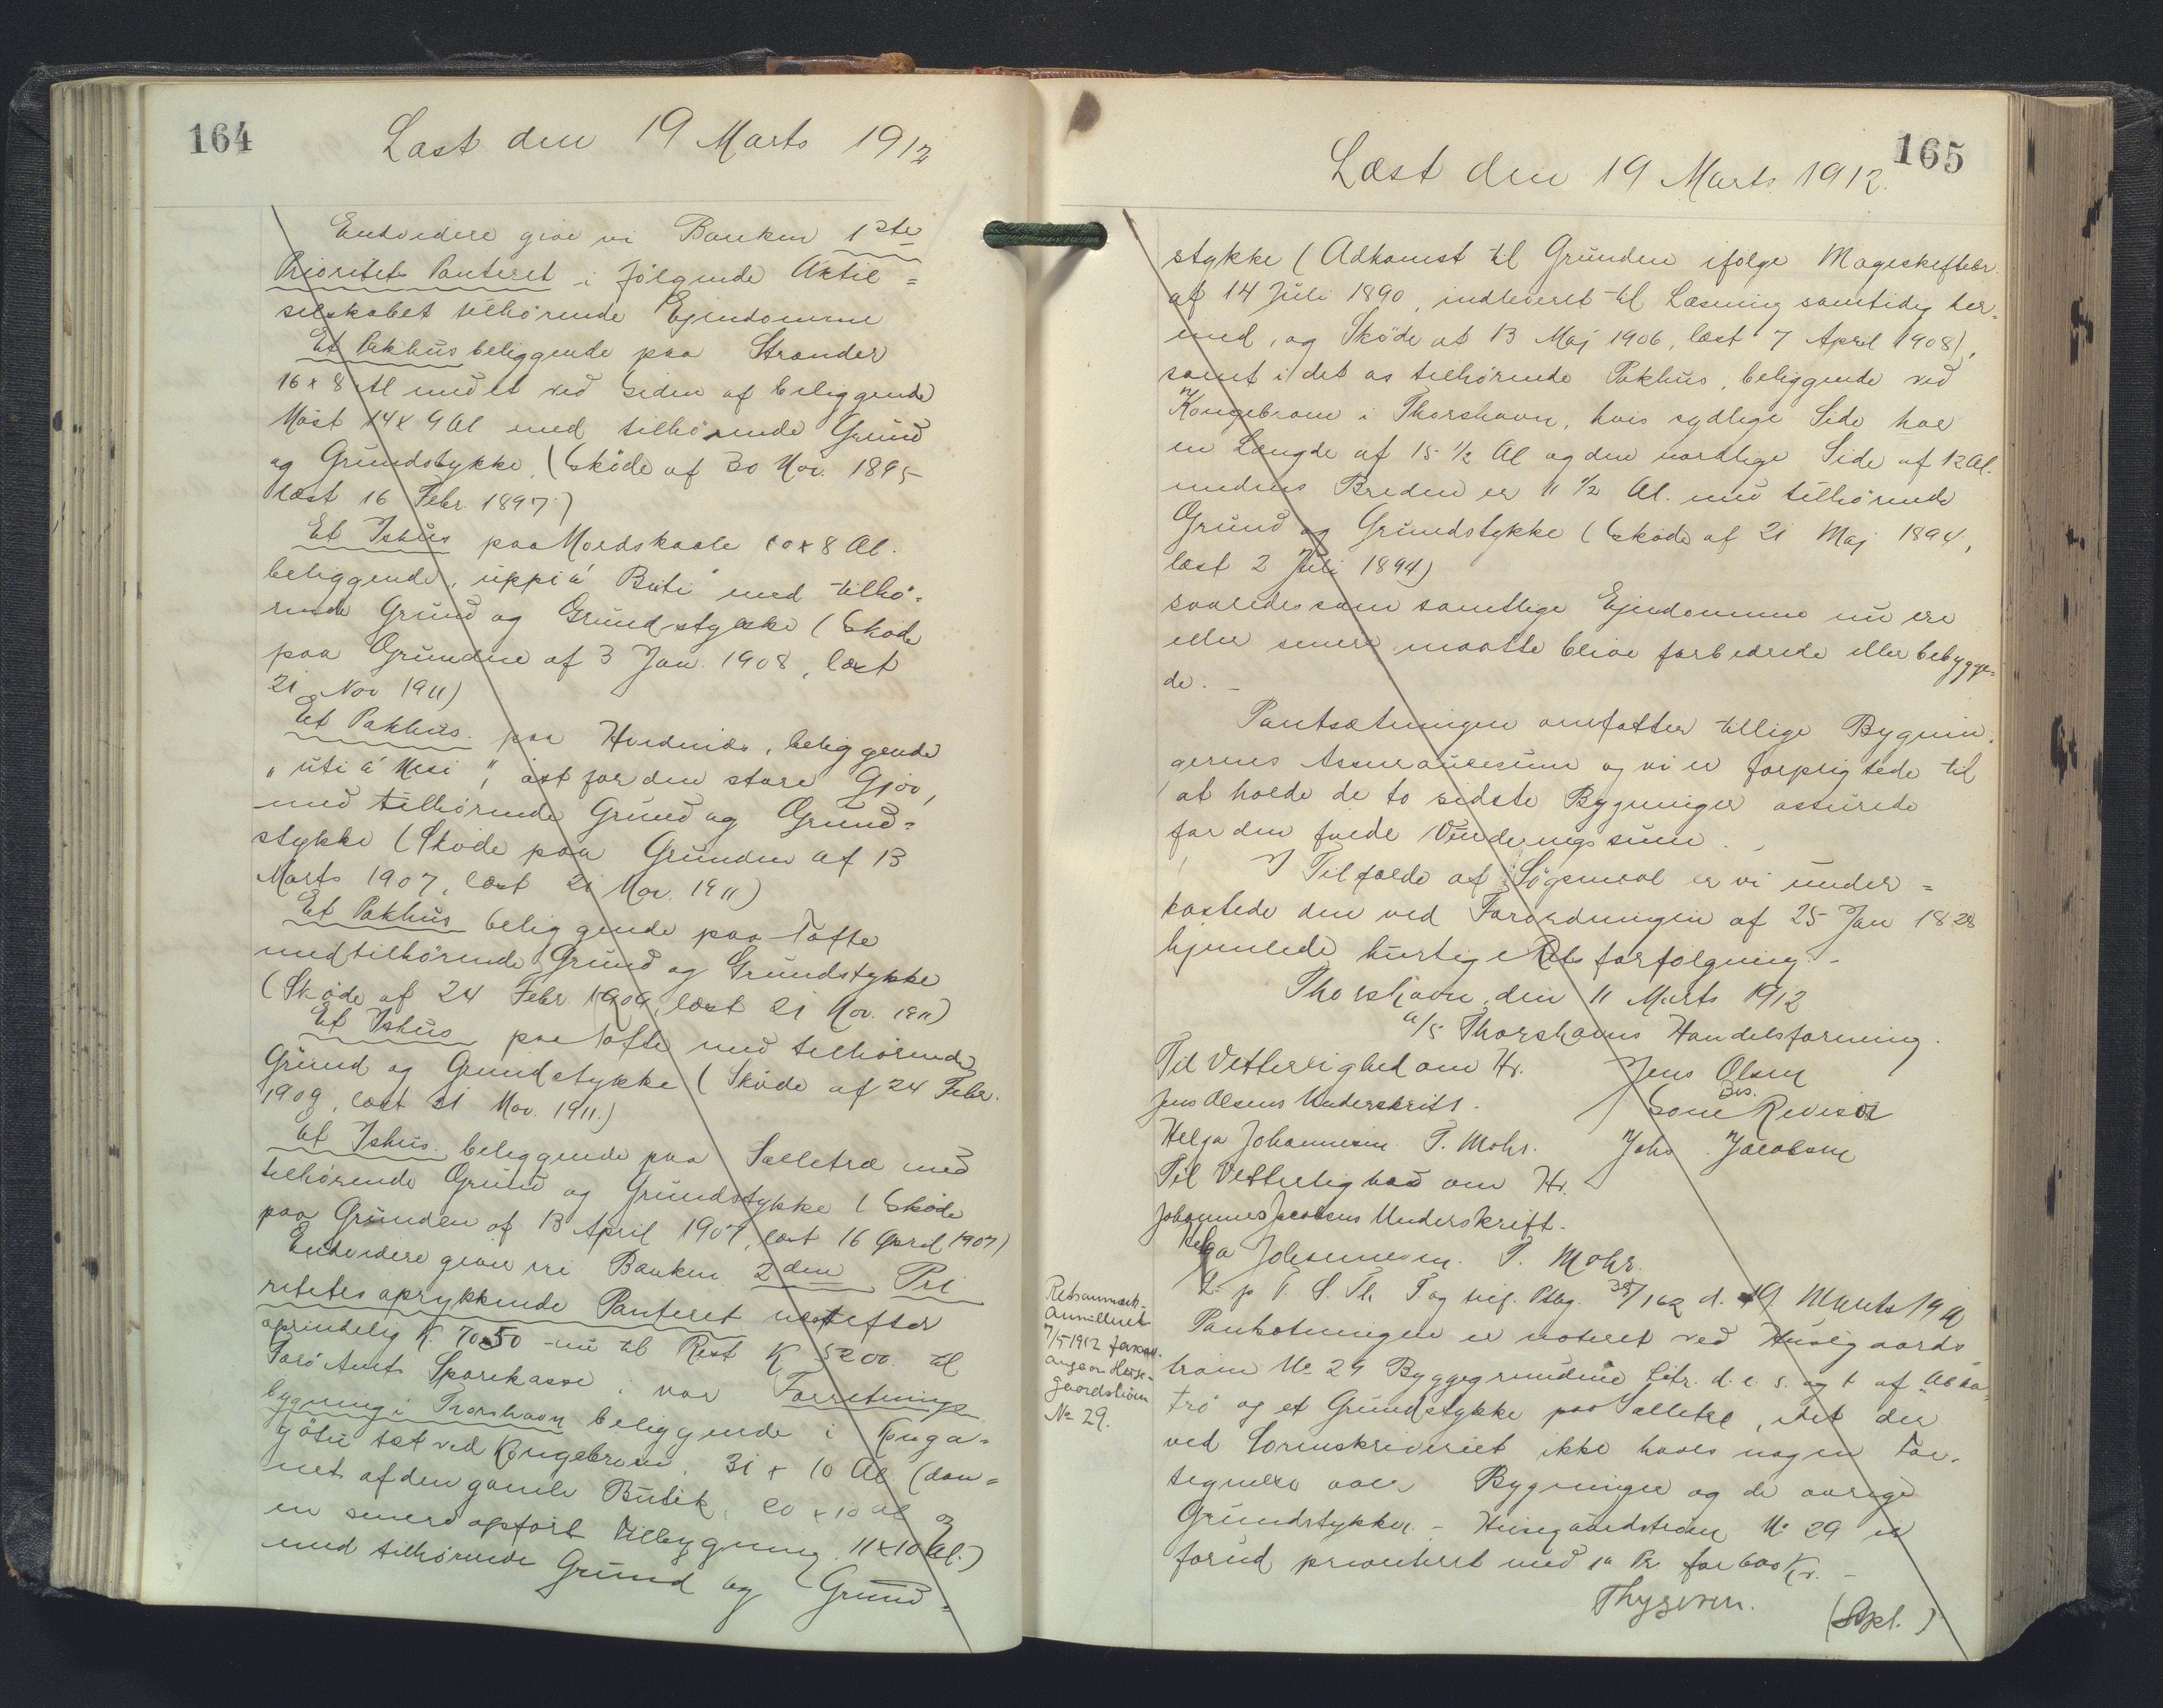 164
Læst den 19 Marts 1912
Endvidere give vi Banken 1ste
Prioritets Panteret i følgende Aktie=
selskabet tilhørende Ejendomme
Et Pakhus beliggende paa Strander
16 x 8 Al med et ved Siden af beliggende
Nøst 14 x 9 Al med tilhørende Grund
og Grundstykke. (Skøde af 30 Nov. 1895
læst 16 Febr. 1897)
Et Ishus paa Nordskaale 10 x 8 Al.
beliggende, uppi á Buti" med tilhø=
rende Grund og Grundstykke (Skøde
paa Grunden af 3 Jan. 1908, læst
21 Nov 1911)
Et Pakhus. paa Hvidenæs, beliggende
"uti á Nesi", øst for den store Gjov,
med tilhørende Grund og Grund=
stykke (Skøde paa Grunden af 13
Marts 1907, læst 21 Nov. 1911)
Et Pakhus beliggende paa Tofte
med tilhørende Grund og Grundstykke
(Skøde af 24 Febr. 1909, læst 21 Nov. 1911)
Et Ishus paa Tofte med tilhørende
Grund og Grundstykke (Skøde af 24 Febr.
1909, læst 21 Nov. 1911.)
Et Ishus. beliggende paa Selletræ med
tilhørende Grund og Grundstykke (Skøde
paa Grunden af 13 April 1907, læst 16 April 1907)
Endvidere giver vi Banken 2den Pri
ritets oprykkende Panteret næstefter
oprindelig K. 7050 nu til Rest K 5200 til
Færø Amts Sparekasse i vor Forretnings
bygning i Thorshavn beliggende i Konga=
gøtu tæt ved Kongebroen, 31 x 10 Al (dan=
net af den gamle Butik, 20 x 10 al og
en senere opført Tilbygning 11 x 10 Al.)
med tilhørende Grund og Grund=
165
Læst den 19 Marts 1912.
stykke (Adkomst til Grunden ifølge Mageskiftebr.
af 14 Juli 1890, indleveret til Læsning samtidig her=
med, og Skøde af 13 Maj 1906, læst 7 April 1908),
samt i det os tilhørende Pakhus, beliggende ved
Kongebroen i Thorshavn, hvis sydlige Side har
en Længde af 15 1/2 Al og den nordlige Side af 12 Al.
medens Breden er 11 1/2 Al. med tilhørende
Grund og Grundstykke (Skøde af 21 Maj 1894,
læst 2 Juli 1894)
saaledes som samtlige Ejendomme nu ere
eller senere maatte blive forbedrede eller bebygge=
de. –
Pantsætningen omfatter tillige Bygnin=
gernes Assurancesum og vi er forpligtede til
at holde de to sidste Bygninger assurede
for den fulde Vurderings sum.
I Tilfælde af Søgsmaal er vi under=
kastede den ved Forordningen af 25 Jan 1828
hjemlede hurtige Rets forfølgning. –
Thorshavn, den 11 Marts 1912
a/s Thorshavns Handelsforening.
Til Vitterlighed om Hr. Jens Olsen
Jens Olsens Underskrift. Bes.
som Revisor
Helga Johannesen P. Mohr. Johs Jacobsen
Til Vitterlighed om Hr.
Johannes Jacobsens Underskrift.
Helga Johannesen. P. Mohr.
L. p T. S. Th T. og trif. Ptbg. /162 d. 19 Marts 1912
Pantsætningen er noteret ved Husegaards
troin No 29 Byggegrundene Litr. d. e. s. og t af
trø og et Grundstykke paa Selletræ, idet der
ved Sorenskriveriet ikke haves nogen For=
tegnelse over Bygninger og de øvrige
Grundstykker. – Husegaardstroin No 29 er
forud prioriteret med 1a Pr. for 600 Kr. –
Thygesen. (Spl.)
Retsanmærk-
ning
7/5 1912
angaar Huse-
gaardstroin
No 29.